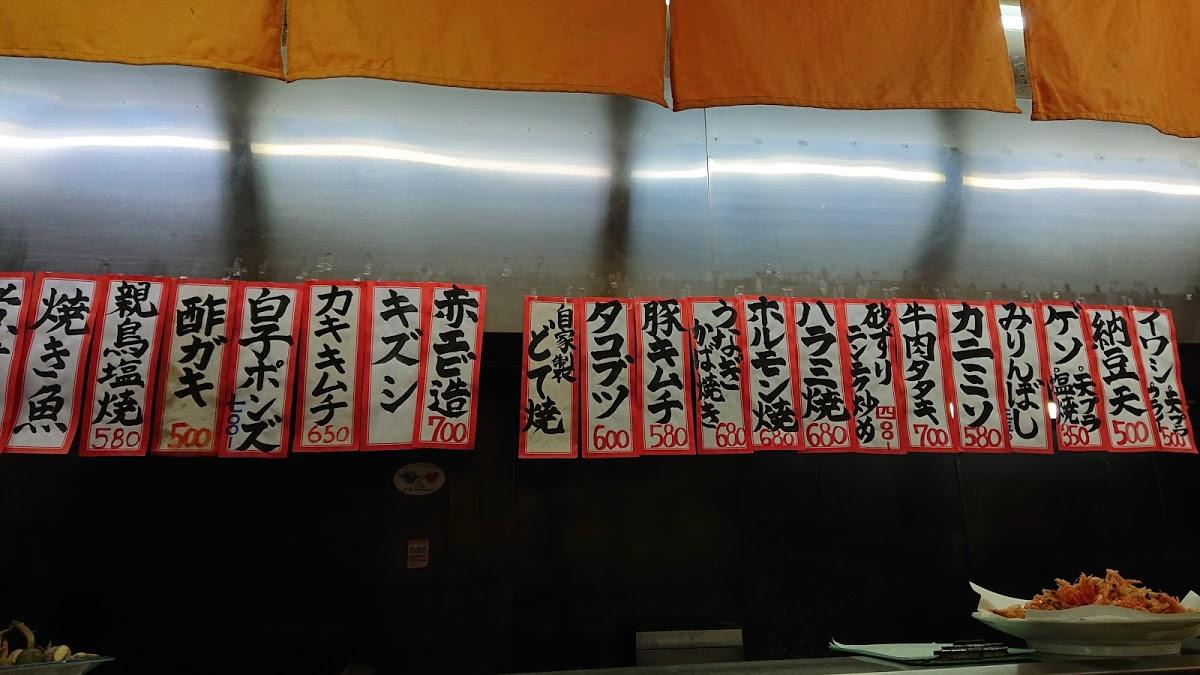 焼き魚
親鳥塩焼
580
酢ガキ
500
白子ポンズ
カキキムチ
650
キズシ
赤エビ造
700
自家製
どて焼
タコブツ
600
豚キムチ
580
うなぎ
かば焼き
680
ホルモン焼
680
ハラミ焼
680
砂ずり
ニンニク炒め
四〇〇
牛肉タタキ
700
カニミソ
580
みりんぼし
ゲソ・天プラ
・塩焼
350
納豆天
500
イワシ・天プラ
・フライ
500